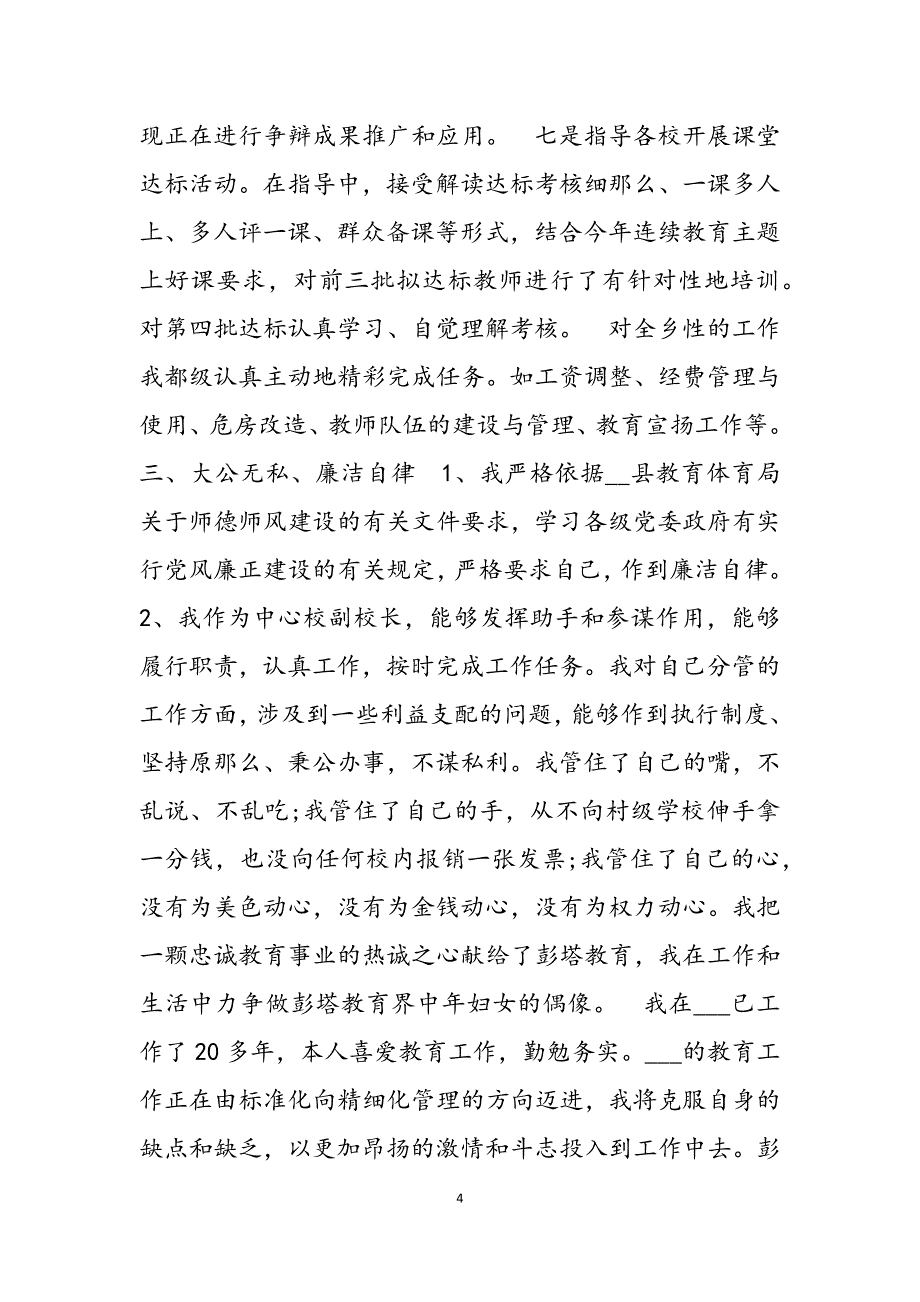 现正在进行争辩成果推广和应用。　七是指导各校开展课堂
达标活动。在指导中，接受解读达标考核细那么、一课多人
上、多人评一课、群众备课等形式，结合今年连续教育主题
上好课要求，对前三批拟达标教师进行了有针对性地培训。
对第四批达标认真学习、自觉理解考核。　对全乡性的工作
我都级认真主动地精彩完成任务。如工资调整、经费管理与
使用、危房改造、教师队伍的建设与管理、教育宣扬工作等。
三、大公无私、廉洁自律　1、我严格依据__县教育体育局
关于师德师风建设的有关文件要求，学习各级党委政府有实
行党风廉正建设的有关规定，严格要求自己，作到廉洁自律。
2、我作为中心校副校长，能够发挥助手和参谋作用，能够
履行职责，认真工作，按时完成工作任务。我对自己分管的
工作方面，涉及到一些利益支配的问题，能够作到执行制度、
坚持原那么、秉公办事，不谋私利。我管住了自己的嘴，不
乱说、不乱吃;我管住了自己的手，从不向村级学校伸手拿
一分钱，也没向任何校内报销一张发票;我管住了自己的心，
没有为美色动心，没有为金钱动心，没有为权力动心。我把
一颗忠诚教育事业的热诚之心献给了彭塔教育，我在工作和
生活中力争做彭塔教育界中年妇女的偶像。　我在___已工
作了 20 多年，本人喜爱教育工作，勤勉务实。___的教育工
作正在由标准化向精细化管理的方向迈进，我将克服自身的
缺点和缺乏，以更加昂扬的激情和斗志投入到工作中去。彭
4